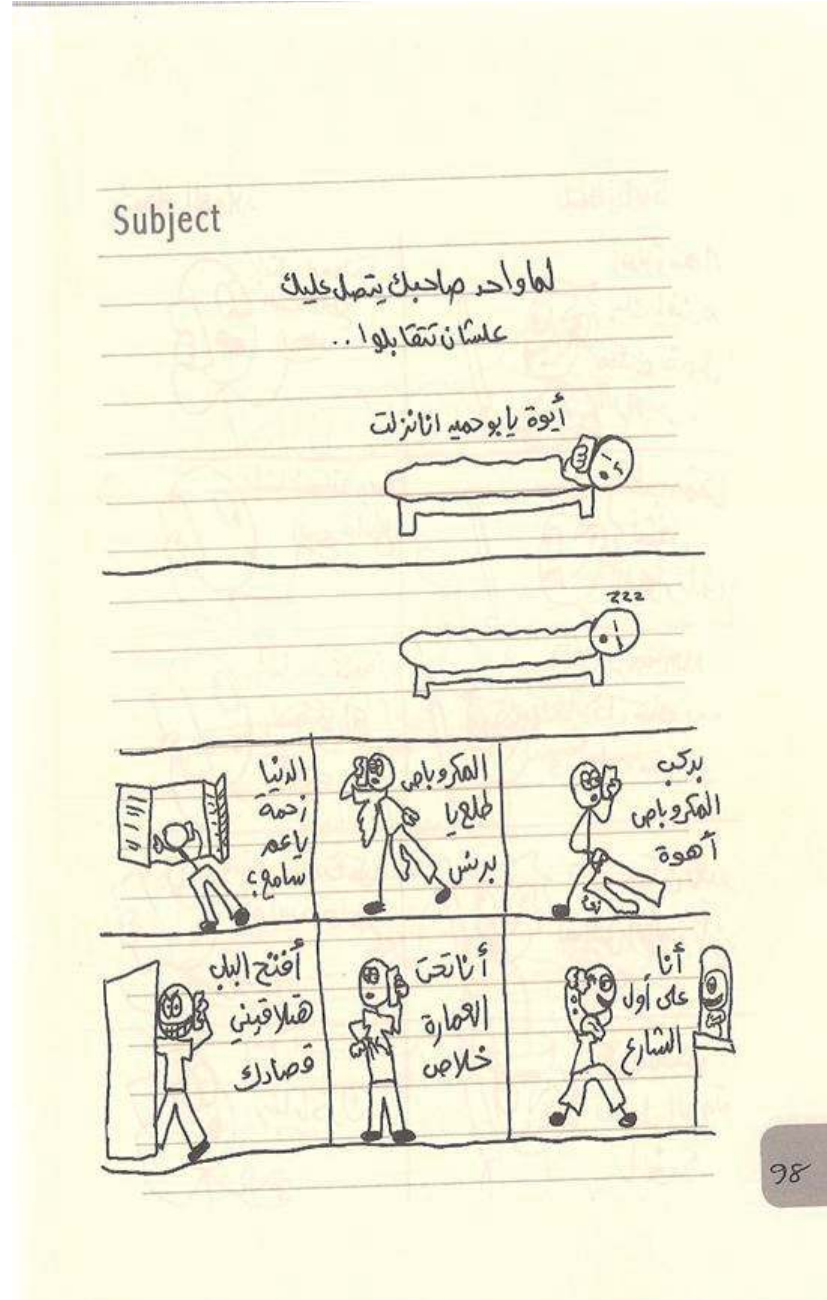 Subject
لما واحد صاحبك يتصل عليك
علشان تتقابلوا..
أيوة يا بو حميد انا نزلت
zzz
بركب
المكروباص
أهوة
المكروباص
طلع يا
برنس
الدنيا
زحمة
يا عم
سامع؟
أنا
على أول
الشارع
أنا تحت
العمارة
خلاص
أفتح الباب
هتلاقيني
قصادك
98